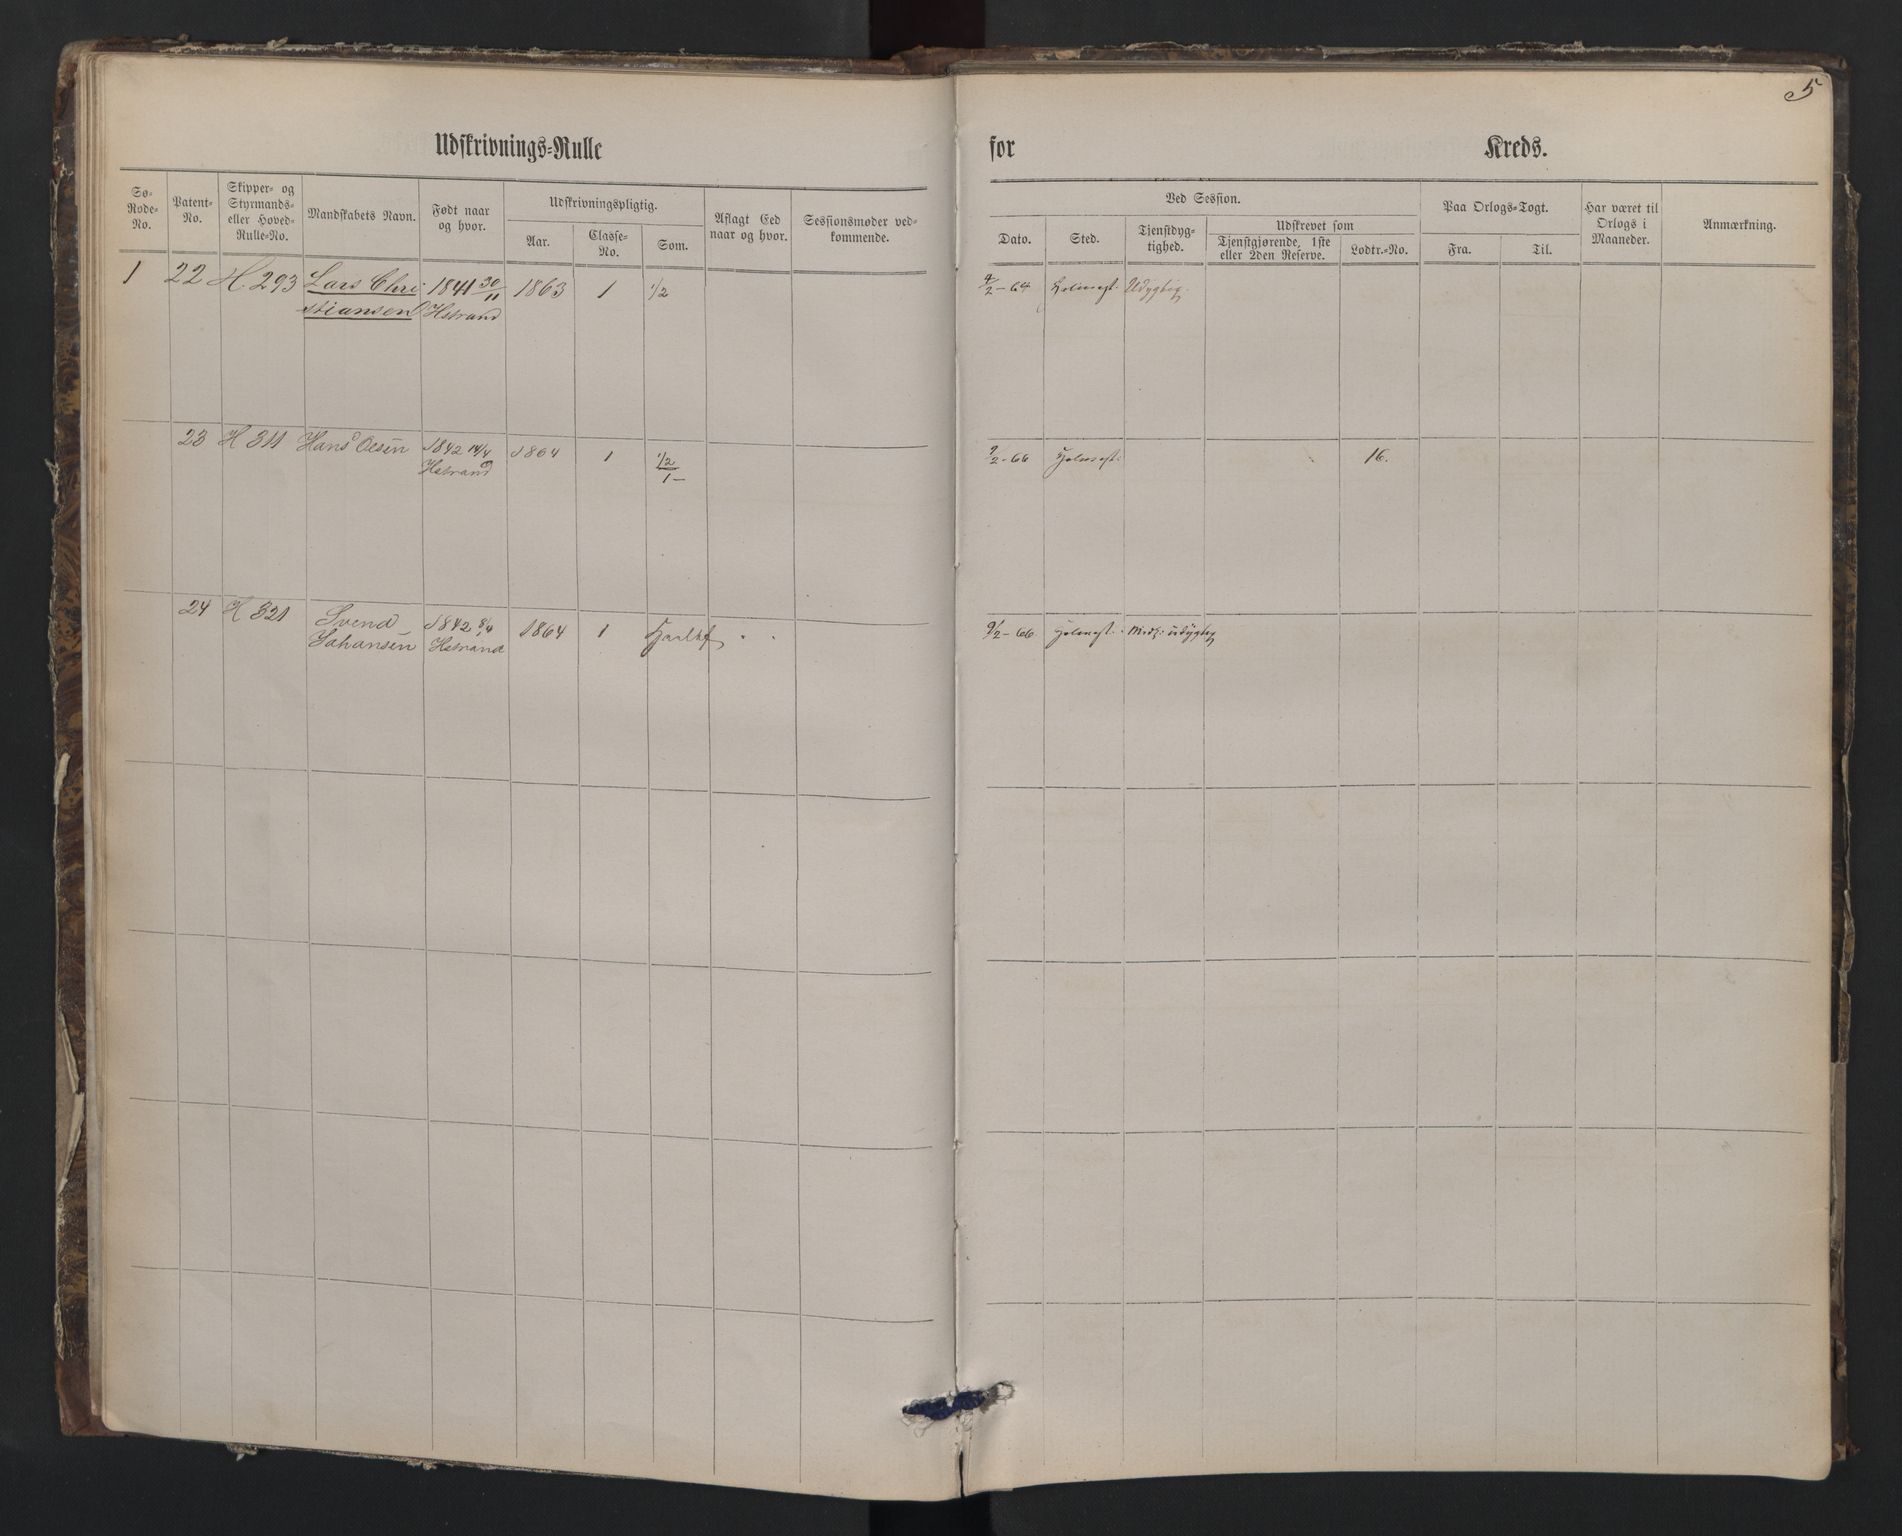 5
Udskrivnings=Rulle for Kreds.
Sø=Rode=No.
Patent=No.
Skipper= og Styrmands= eller Hoved=Rulle=No.
Mandskabets Navn.
Født naar og hvor.
Udskrivningspligtig.
Aar.
Classe=No.
Som.
Aflagt Eed naar og hvor.
Sessionsmøder vedkommende.
Ved Session.
Dato.
Sted.
Tjenstdygtighed.
Udskrevet som
Tjenstgjørende, 1ste eller 2den Reserve.
Lodtr.=No.
Paa Orlogs=Togt.
Fra.
Til.
Har været til Orlogs i Maaneder.
Anmærkning.
1 22 H. 293 Lars Chri 1841 30/11 1863 1 1/2 4/2-64 Holmest. Udygtig.
stiansen Hstrand
23 H 311 Hans Olsen 1842 14/4 1864 1 1/2 9/2-66 Holmest. 16.
Hstrand 1-
24 H 321 Svend 1842 8/4 1864 1 9/2-66 Holmest. Midl. udygtig
Johansen Hstrand